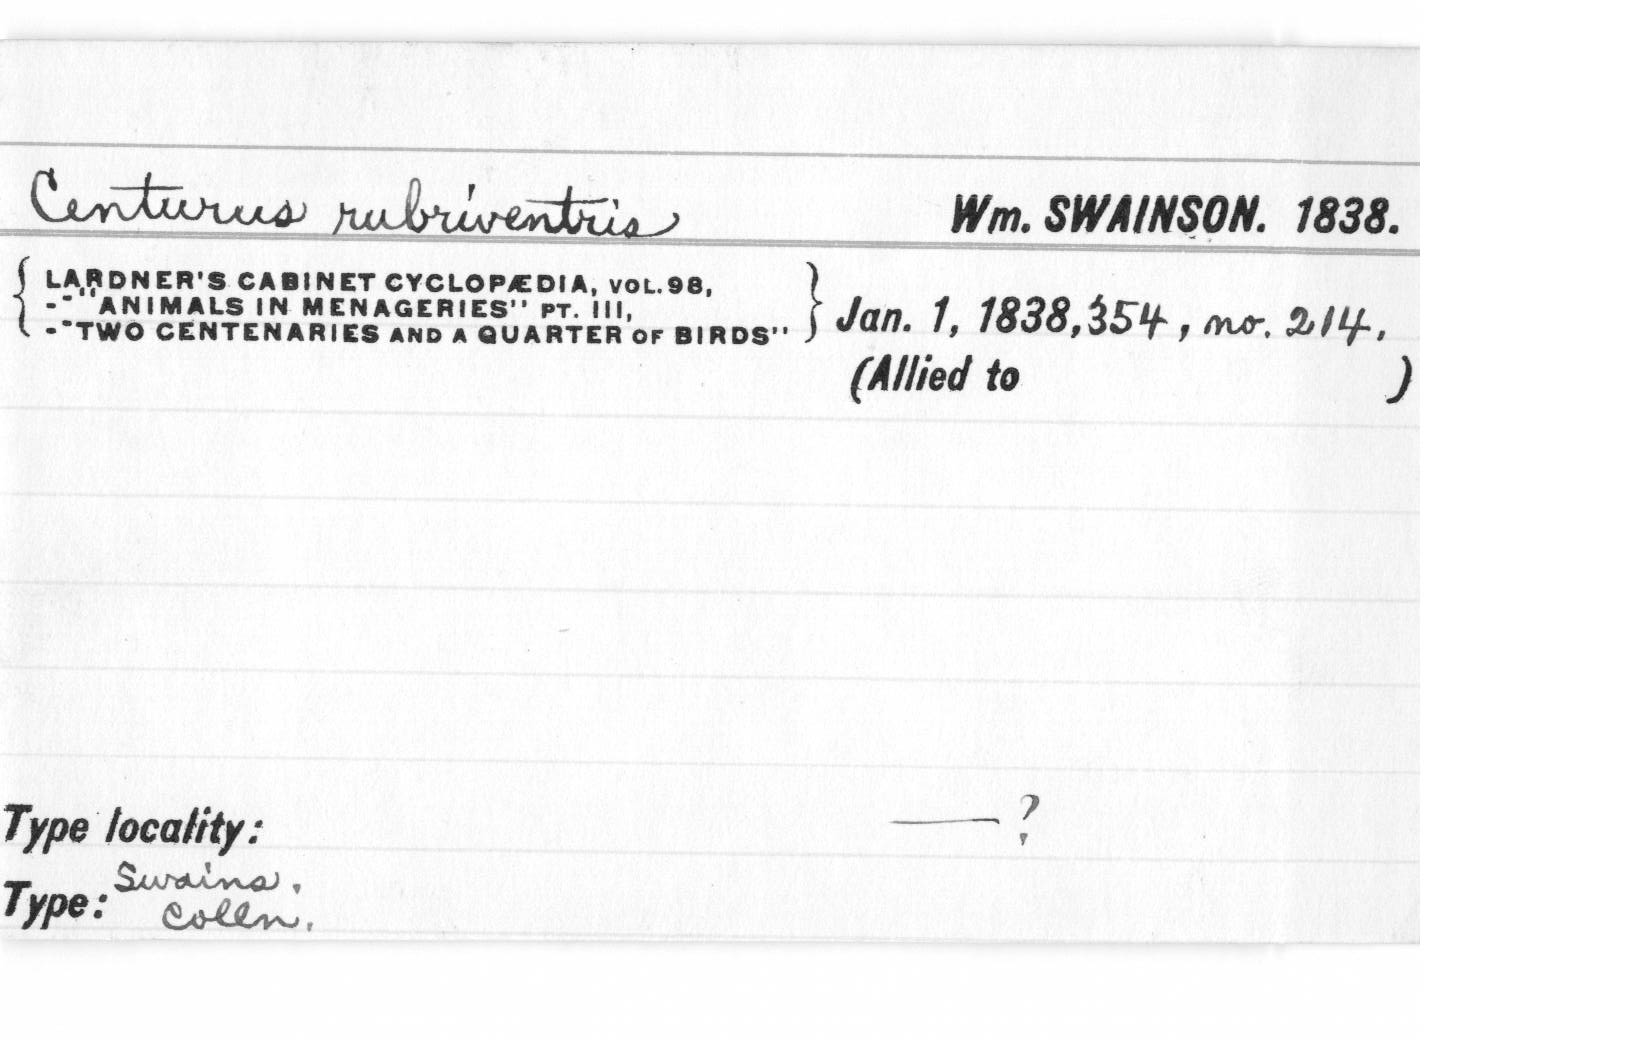 Centurus rubriventris Wm. SWAINSON. 1838.
LARDNER'S CABINET CYCLOPÆDIA, VOL. 98,
-"ANIMALS IN MENAGERIES" PT. III,
-"TWO CENTENARIES AND A QUARTER OF BIRDS" Jan. 1, 1838, 354, no. 214.
(Allied to )
Type locality: —?
Type: Swains.
Colln.